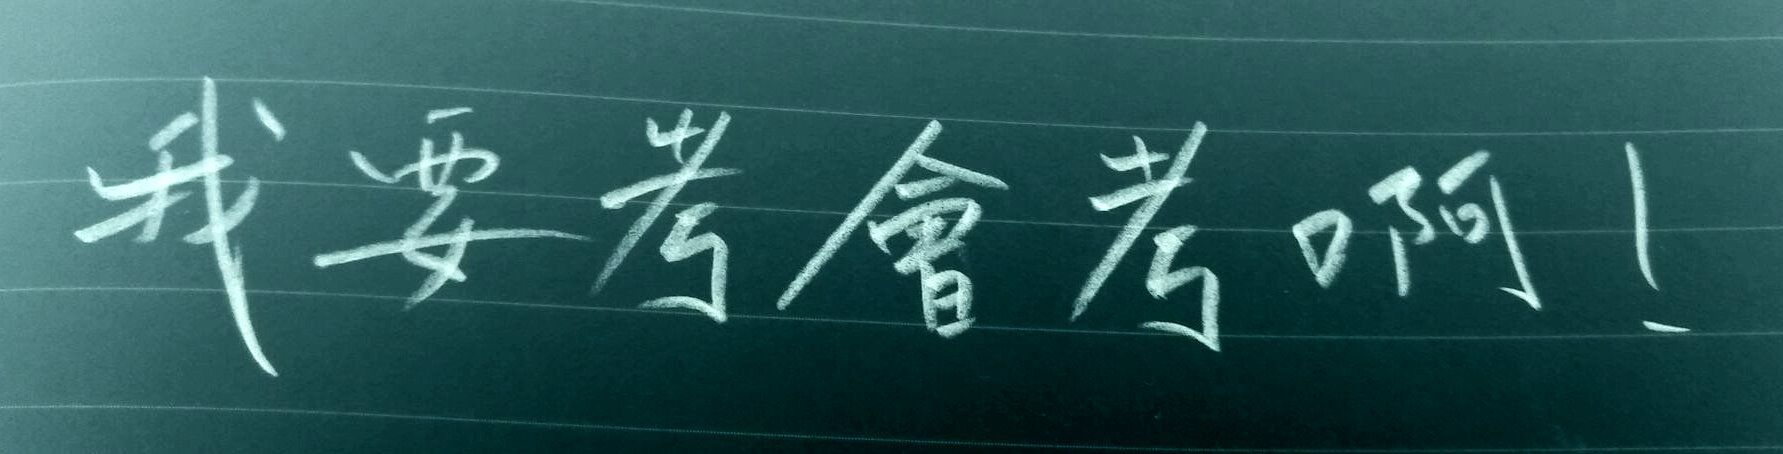 我要考會考啊!